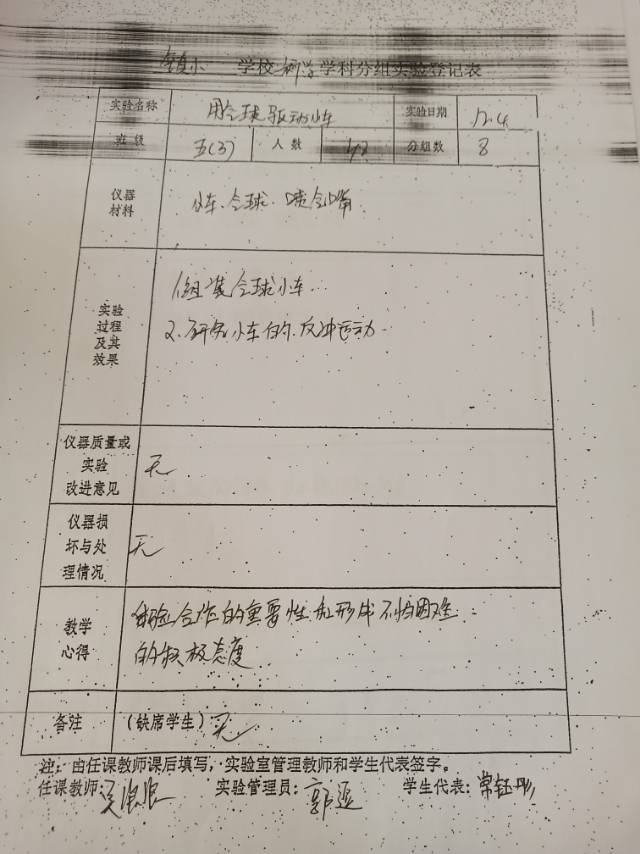 镇小 学校科学学科分组实验登记表
实验名称 用气球驱动小车 实验日期 12.4
班级 五(3) 人数 42 分组数 8
仪器
材料
小车、气球、喷气嘴
实验
过程
及其
效果
1.组装气球小车
2.研究小车的反冲运动
仪器质量或
实验
改进意见
无
仪器损
坏与处
理情况
无
教学
心得
体验合作的重要性和形成不怕困难
的积极态度
备注 (缺席学生) 无
注：由任课教师课后填写，实验室管理教师和学生代表签字。
任课教师: 实验管理员: 郭 学生代表: 常钰彤